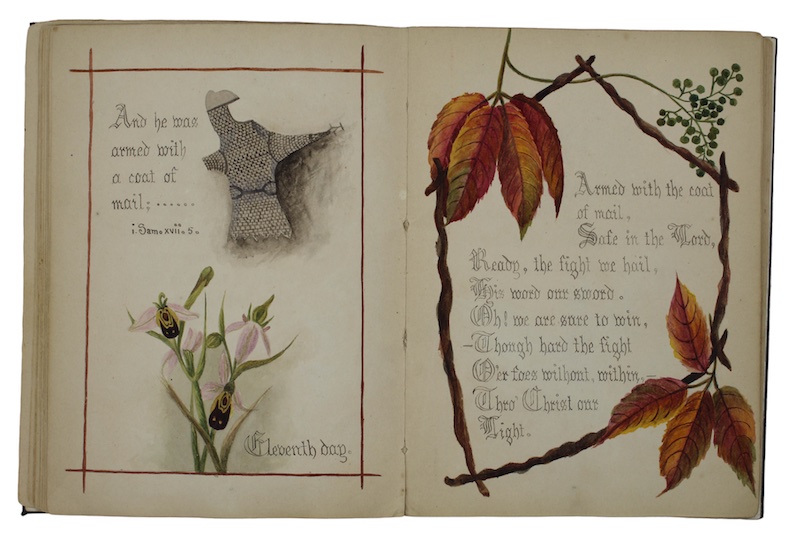 And he was
armed with
a coat of
mail; ......
i. Sam. xvii. 5.
Eleventh day.
Armed with the coat
of mail,
Safe in the Lord,
Ready, the fight we hail,
His word our sword.
Oh! we are sure to win,
-Though hard the fight
O'er foes without, within,-
Thro' Christ our
Light.